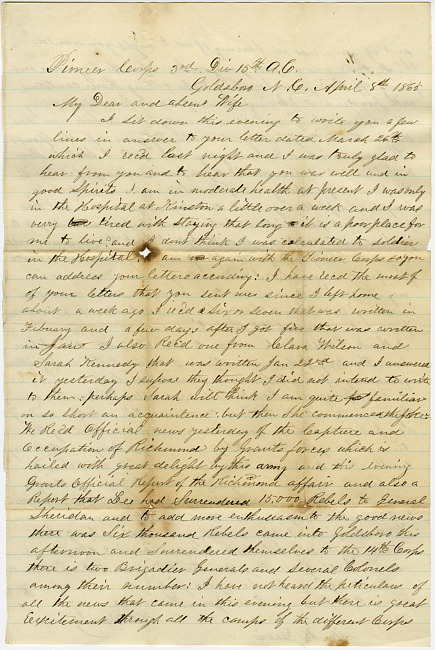 Pioneer Corps 3rd Div 15th A.C.
Goldsboro N.C. April 8th 1865
My Dear and absent Wife
I sit down this evening to write you a few
lines in answer to your letter dated March 26th
which I recd last night and I was truly glad to
hear from you and to hear that you was well and in
good Spirits I am in moderate health at present I was only
in the Hospital at Kinston a little over a week and I was
very tired with staying that long it is a poor place for
me to live and dont think I was calculated to soldier
in the Hospital am again with the Pioneer Corps so you
can address your letters according: I have recd the most
of your letters that you sent me since I left home
about a week ago I recd six or seven that was written in
Febuary and a few days after I got five that was written
in Jan I also Recd one from Clara Wilson and
Sarah Kennedy that was written Jan 22nd and I answered
it yesterday I supose they thought I did not intend to write
to them: perhaps Sarah will think I am quite familiar
on so short an acquaintence: but then She commenced
We Recd Official news yesterday of the Capture and
Occupation of Richmond by Grants forces which is
hailed with great delight by this army and this evening
Grants Official Report of the Richmond affair and also a
Report that Lee had Surrendered 15,000 Rebels to General
Sheridan and to add more enthusiasm to the good news
there was Six thousand Rebels came into Goldsboro this
afternoon and Surrendered themselves to the 14th Corps
there is two Brigadier Generals and Several Colonels
among their number: I have not heard the peticulars of
all the news that came in this evening but there is great
Exsitement through all the camps of the diferent Corps